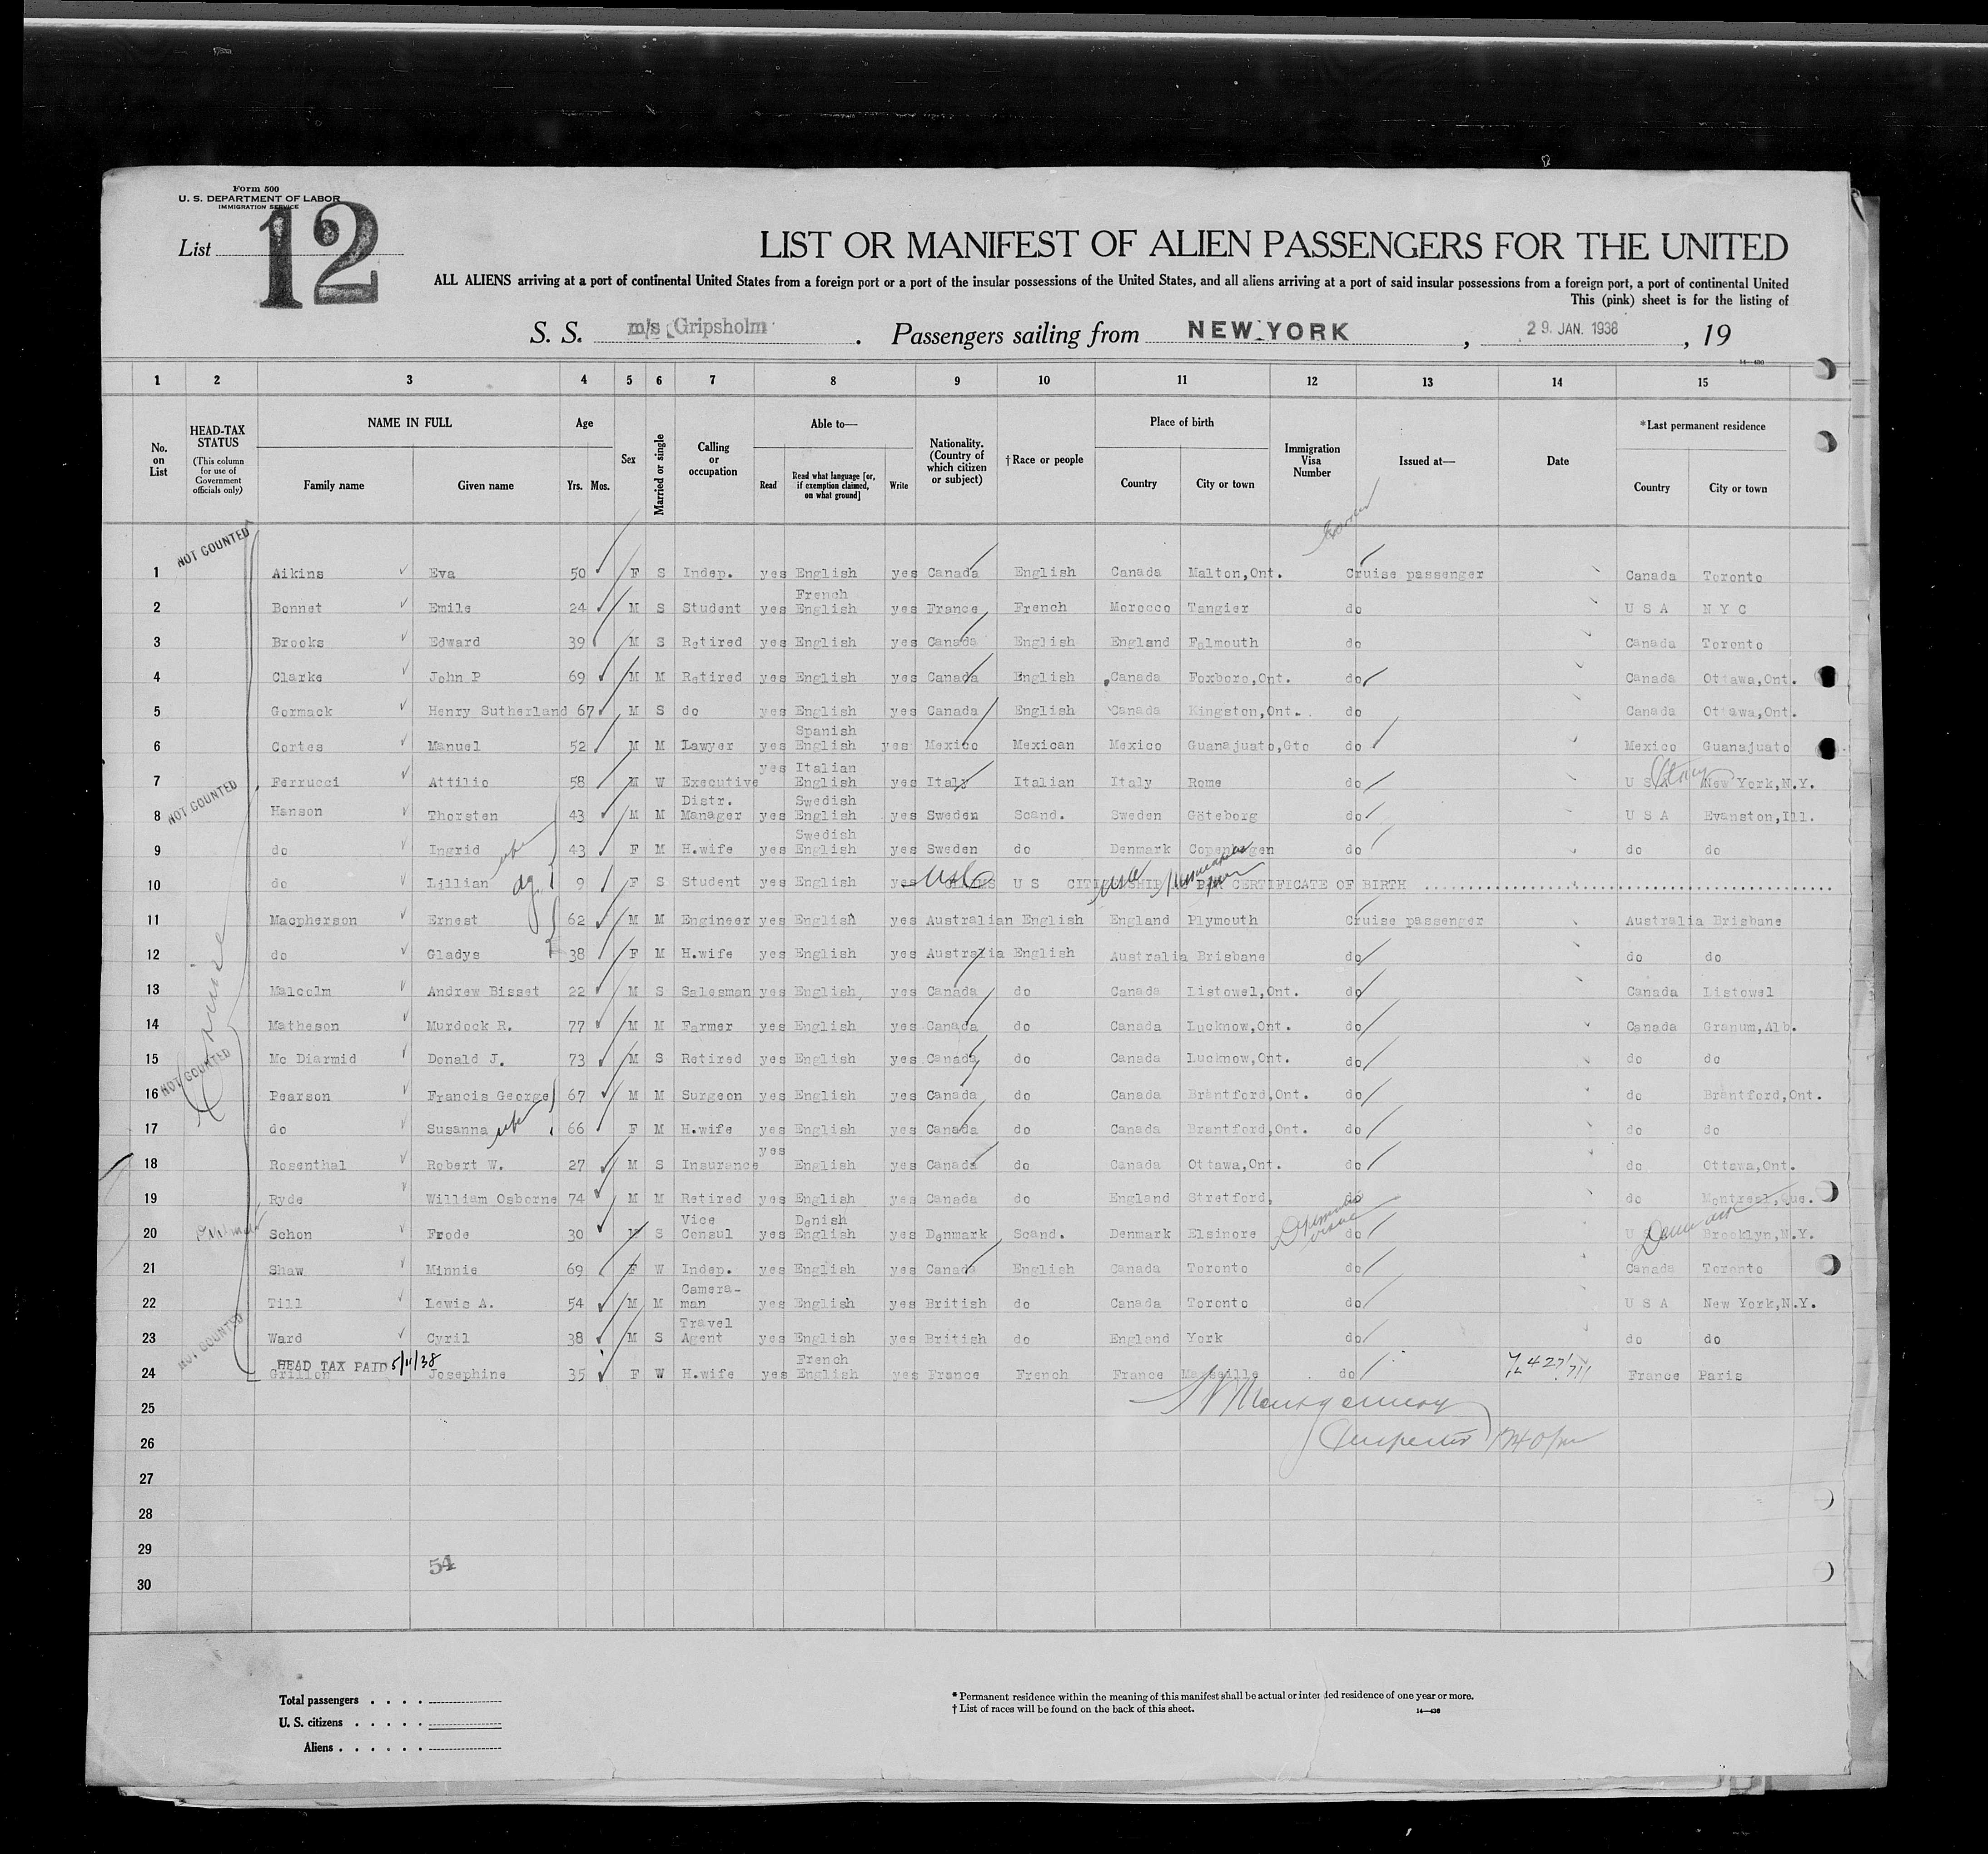 Form 500
U. S. DEPARTMENT OF LABOR
IMMIGRATION SERVICE
List 12
LIST OR MANIFEST OF ALIEN PASSENGERS FOR THE UNITED
ALL ALIENS arriving at a port of continental United States from a foreign port or a port of the insular possessions of the United States, and all aliens arriving at a port of said insular possessions from a foreign port, a port of continental United
This (pink) sheet is for the listing of
S. S. m/s Gripsholm . Passengers sailing from NEW YORK , 29. JAN. 1938 , 19
14—430
1 2 3 4 5 6 7 8 9 10 11 12 13 14 15
No. on List
HEAD-TAX STATUS (This column for use of Government officials only)
NAME IN FULL
Family name Given name
Age
Yrs. Mos.
Sex
Married or single
Calling or occupation
Able to—
Read Read what language [or, if exemption claimed, on what ground] Write
Nationality. (Country of which citizen or subject)
†Race or people
Place of birth
Country City or town
Immigration Visa Number
Issued at—
Date
*Last permanent residence
Country City or town
NOT COUNTED
1 Aikins Eva 50 F S Indep. yes English yes Canada English Canada Malton,Ont. Cruise passenger Canada Toronto
2 Bonnet Emile 24 M S Student yes French English yes France French Morocco Tangier do U S A N Y C
3 Brooks Edward 39 M S Retired yes English yes Canada English England Falmouth do Canada Toronto
4 Clarke John P 69 M M Retired yes English yes Canada English Canada Foxboro,Ont. do Canada Ottawa,Ont.
5 Cormack Henry Sutherland 67 M S do yes English yes Canada English Canada Kingston,Ont. do Canada Ottawa,Ont.
6 Cortes Manuel 52 M M Lawyer yes Spanish English yes Mexico Mexican Mexico Guanajuato,Gto do Mexico Guanajuato
7 Ferrucci Attilio 58 M W Executive yes Italian English yes Italy Italian Italy Rome do U S A Italy New York,N.Y.
NOT COUNTED
8 Hanson Thorsten 43 M M Distr. Manager yes Swedish English yes Sweden Scand. Sweden Göteborg do U S A Evanston,Ill.
9 do Ingrid wife 43 F M H.wife yes Swedish English yes Sweden do Denmark Copenhagen do do do
10 do Lillian 9 F S Student yes English yes USC U S CITIZENSHIP PER CERTIFICATE OF BIRTH
11 Macpherson Ernest 62 M M Engineer yes English yes Australian English England Plymouth Cruise passenger Australia Brisbane
12 do Gladys 38 F M H.wife yes English yes Australia English Australia Brisbane do do do
13 Malcolm Andrew Bisset 22 M S Salesman yes English yes Canada do Canada Listowel,Ont. do Canada Listowel
14 Matheson Murdock R. 77 M M Farmer yes English yes Canada do Canada Lucknow,Ont. do Canada Granum,Alb.
15 Mc Diarmid Donald J. 73 M S Retired yes English yes Canada do Canada Lucknow,Ont. do do do
NOT COUNTED
16 Pearson Francis George 67 M M Surgeon yes English yes Canada do Canada Brantford,Ont. do do Brantford,Ont.
17 do Susanna wife 66 F M H.wife yes English yes Canada do Canada Brantford,Ont. do do do
18 Rosenthal Robert W. 27 M S Insurance yes English yes Canada do Canada Ottawa,Ont. do do Ottawa,Ont.
19 Ryde William Osborne 74 M M Retired yes English yes Canada do England Stretford, do do Montreal,Que.
20 Schon Frode 30 M S Vice Consul yes Danish English yes Denmark Scand. Denmark Elsinore do U S Denmark Brooklyn,N.Y.
21 Shaw Minnie 69 F W Indep. yes English yes Canada English Canada Toronto do Canada Toronto
22 Till Lewis A. 54 M M Camera-man yes English yes British do Canada Toronto do U S A New York,N.Y.
23 Ward Cyril 38 M S Travel Agent yes English yes British do England York do do do
NOT COUNTED
HEAD TAX PAID 5/11/38
24 Grillon Josephine 35 F W H.wife yes French English yes France French France Marseille do France Paris
25 Montgomery
26 Inspector
27
28
29
54
30
Total passengers . . . .
U. S. citizens . . . . .
Aliens . . . . . .
* Permanent residence within the meaning of this manifest shall be actual or intended residence of one year or more.
† List of races will be found on the back of this sheet.
14—430